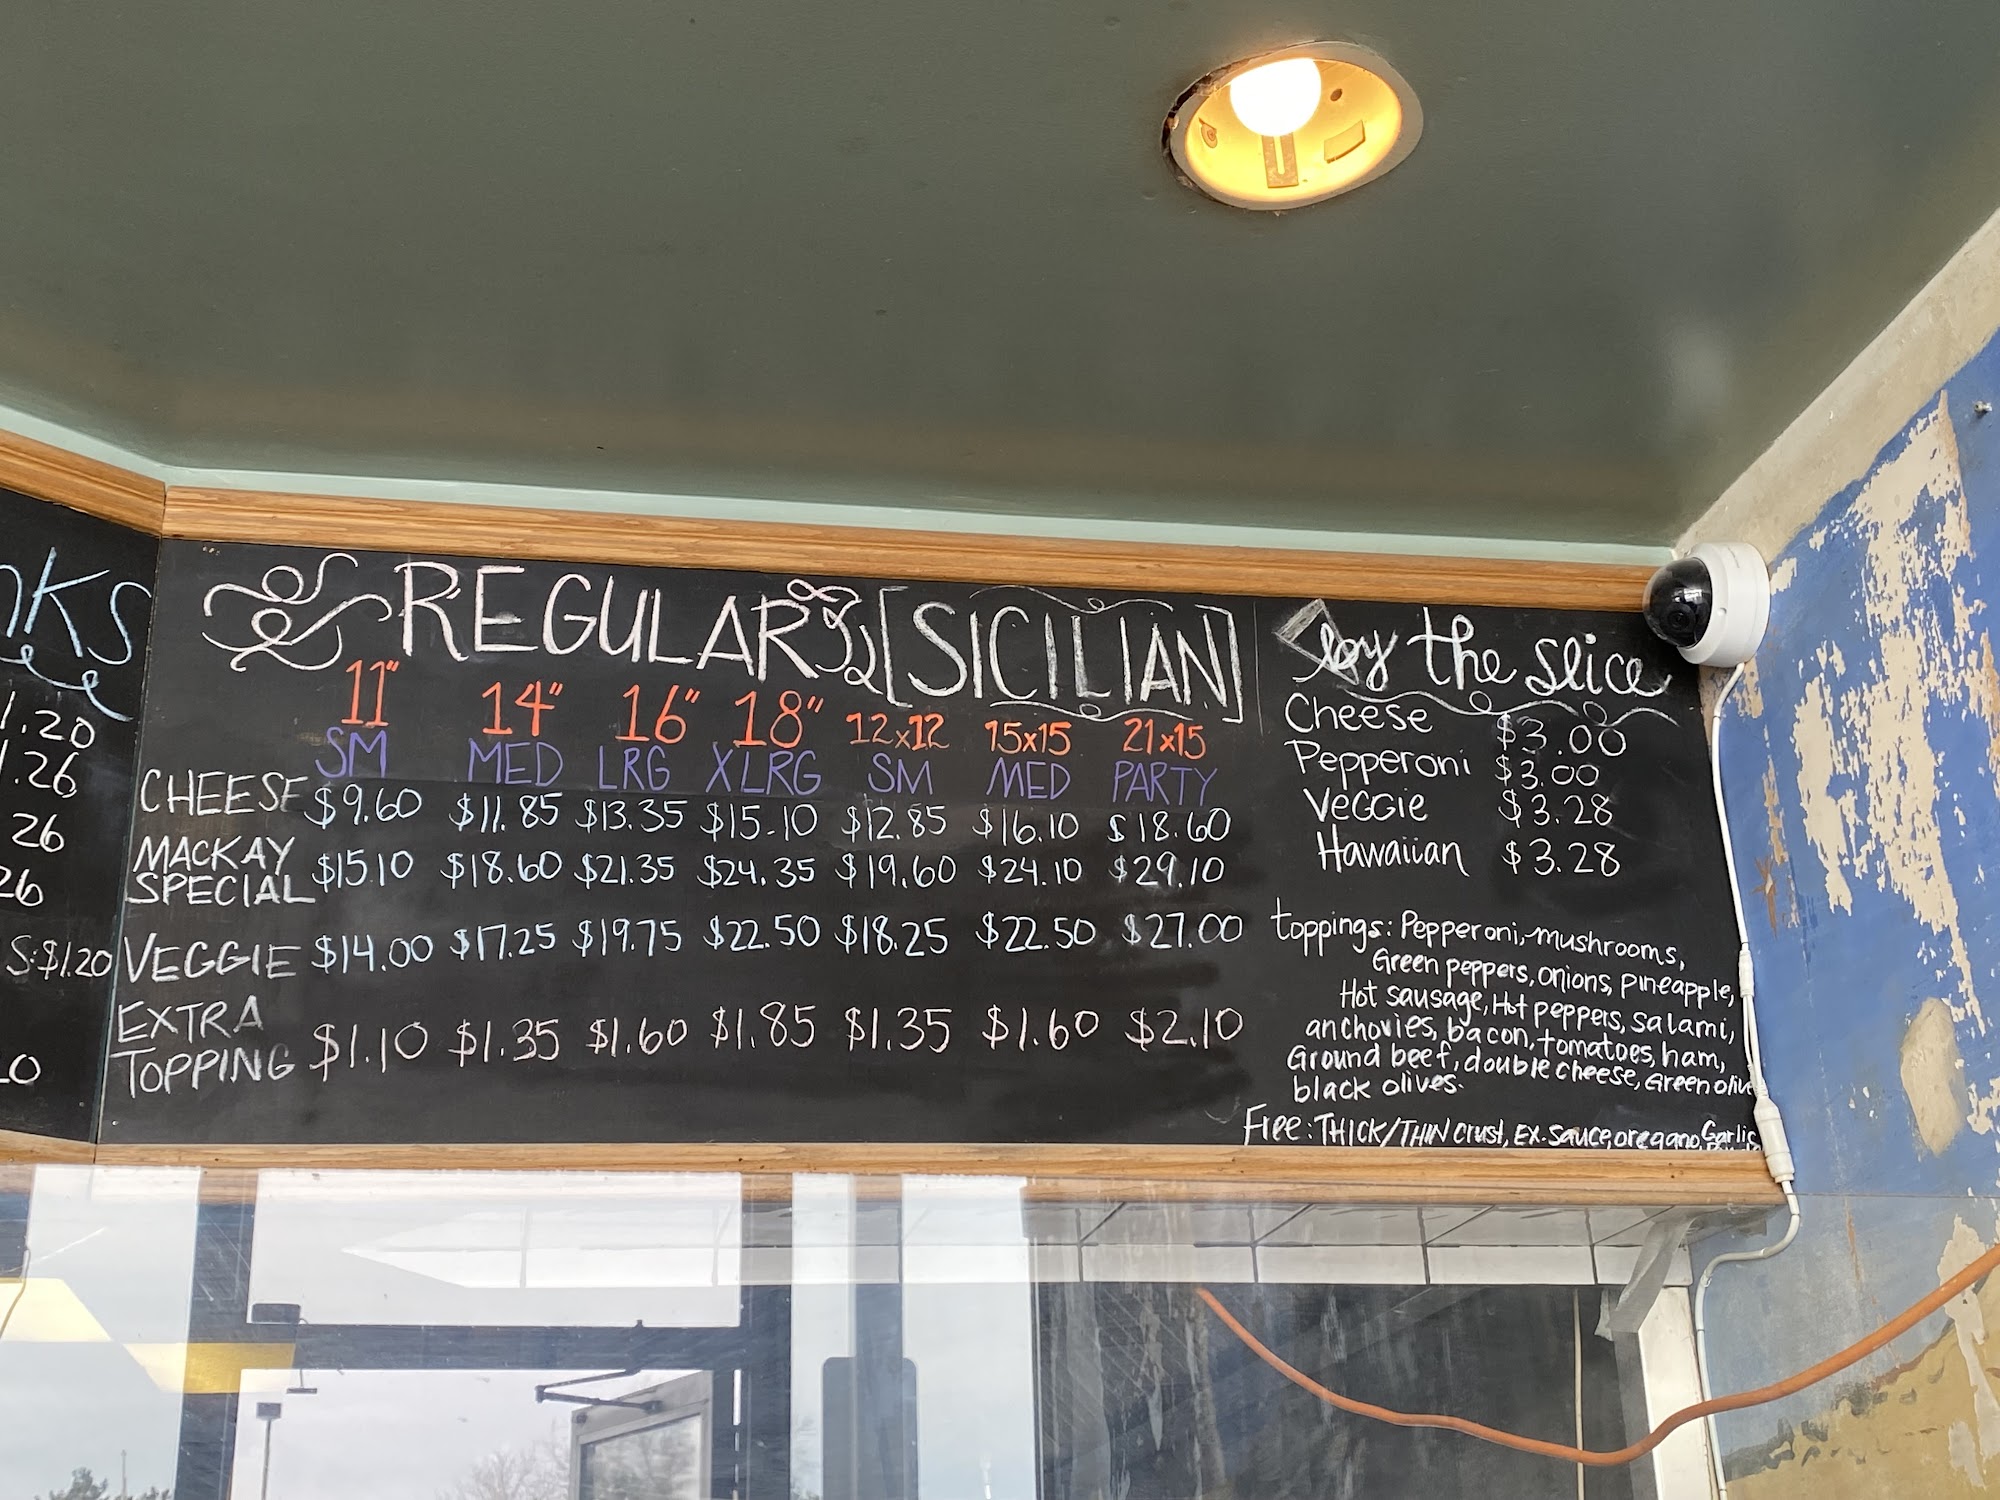 1.20
.26
26
26
S:$1.20
REGULAR
11" 14" 16" 18"
SM MED LRG XLRG
[SICILIAN]
12x12 15x15 21x15
SM MED PARTY
CHEESE $9.60 $11.85 $13.35 $15.10 $12.85 $16.10 $18.60
MACKAY
SPECIAL $15.10 $18.60 $21.35 $24.35 $19.60 $24.10 $29.10
VEGGIE $14.00 $17.25 $19.75 $22.50 $18.25 $22.50 $27.00
EXTRA
TOPPING $1.10 $1.35 $1.60 $1.85 $1.35 $1.60 $2.10
by the slice
Cheese $3.00
Pepperoni $3.00
Veggie $3.28
Hawaiian $3.28
toppings: Pepperoni, mushrooms,
Green peppers, onions, pineapple,
Hot sausage, Hot peppers, salami,
anchovies, bacon, tomatoes, ham,
Ground beef, double cheese, Green olive
black olives.
Free: THICK/THIN crust, EX. sauce, oregano, Garlic